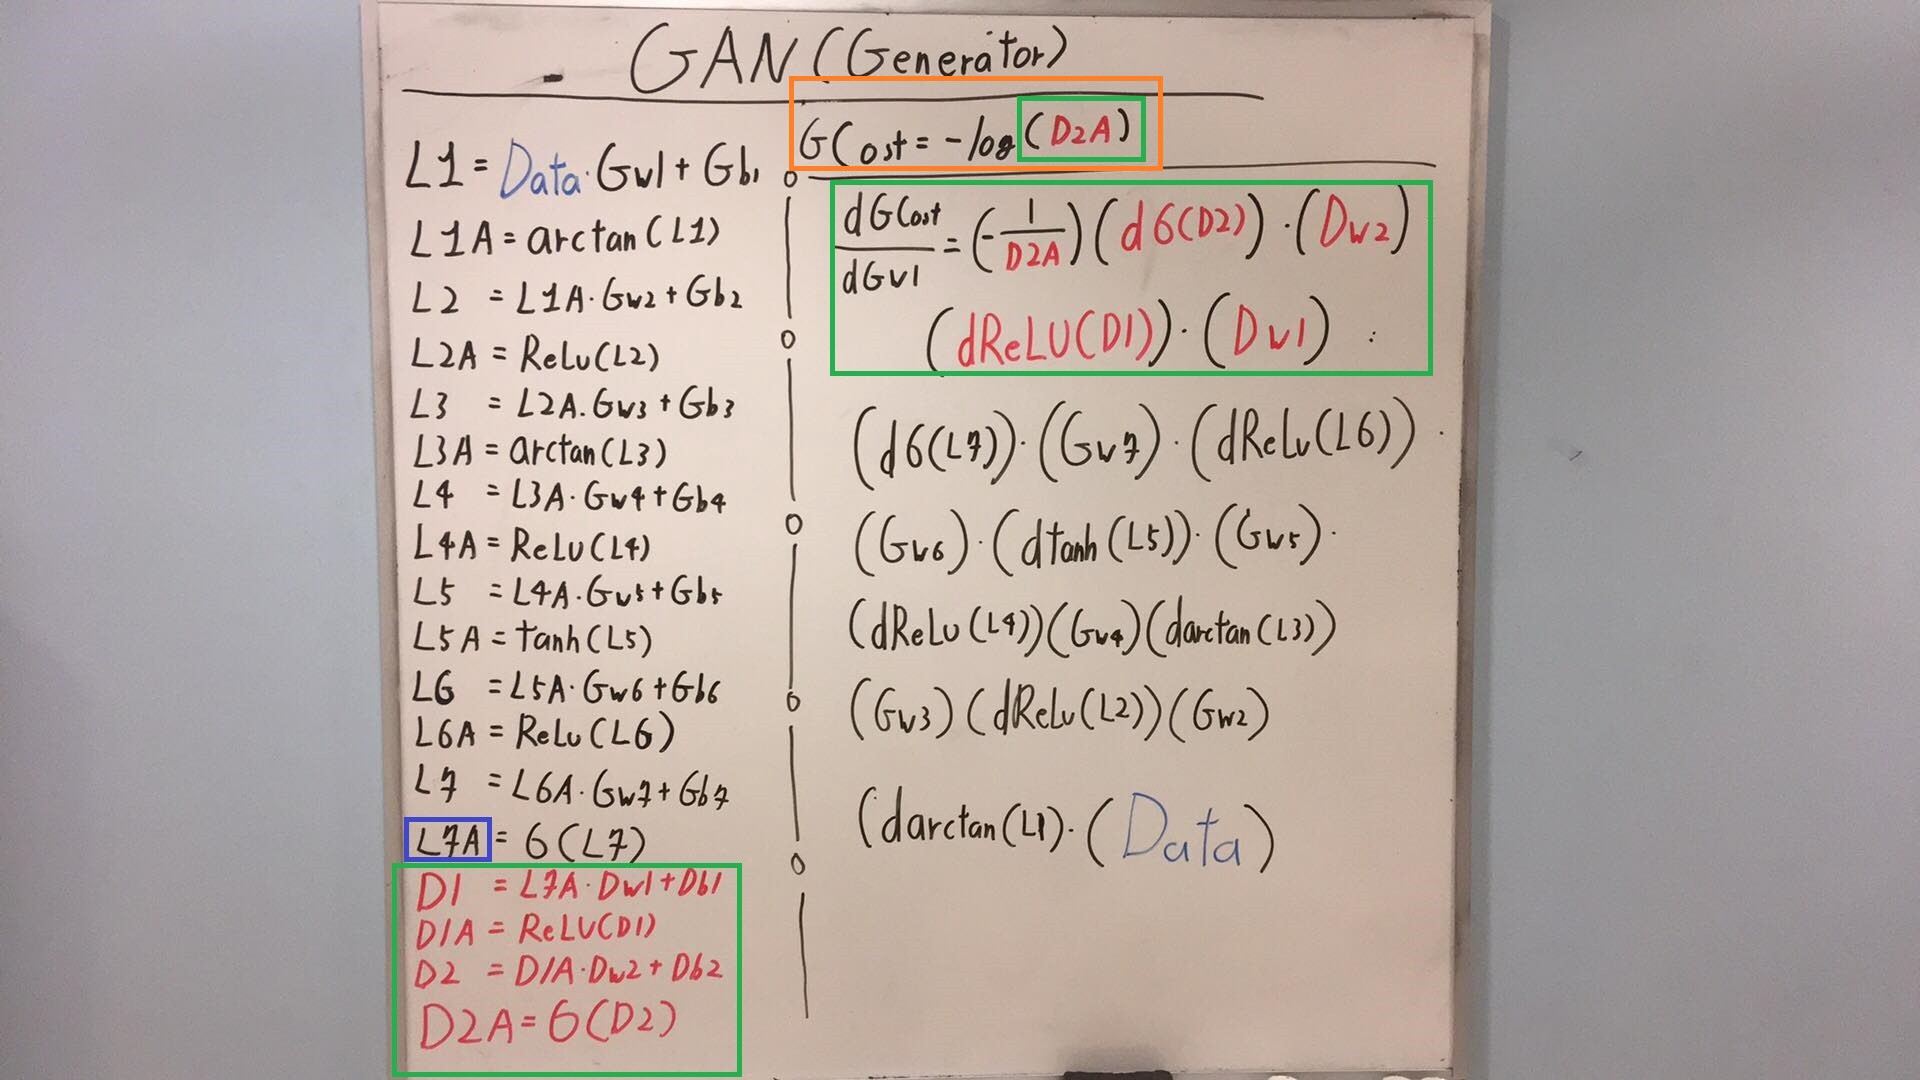 GAN (Generator)
L1 = Data·Gw1 + Gb1
L1A = arctan(L1)
L2 = L1A·Gw2 + Gb2
L2A = ReLu(L2)
L3 = L2A.Gw3 + Gb3
L3A = arctan(L3)
L4 = L3A·Gw4 + Gb4
L4A = ReLu(L4)
L5 = L4A·Gw5 + Gb5
L5A = tanh(L5)
L6 = L5A·Gw6 + Gb6
L6A = ReLu(L6)
L7 = L6A·Gw7 + Gb7
L7A = 6(L7)
D1 = L7A·Dw1 + Db1
D1A = ReLU(D1)
D2 = D1A·Dw2 + Db2
D2A = 6(D2)
GCost = -log(D2A)
dGCost/dGw1 = (-1/D2A)(d6(D2))·(Dw2)
(dReLU(D1))·(Dw1) :
(d6(L7))·(Gw7)·(dRelu(L6))·
(Gw6)·(dtanh(L5))·(Gw5)·
(dRelu(L4))(Gw4)(darctan(L3))
(Gw3)(dRelu(L2))(Gw2)
(darctan(L1)·(Data)